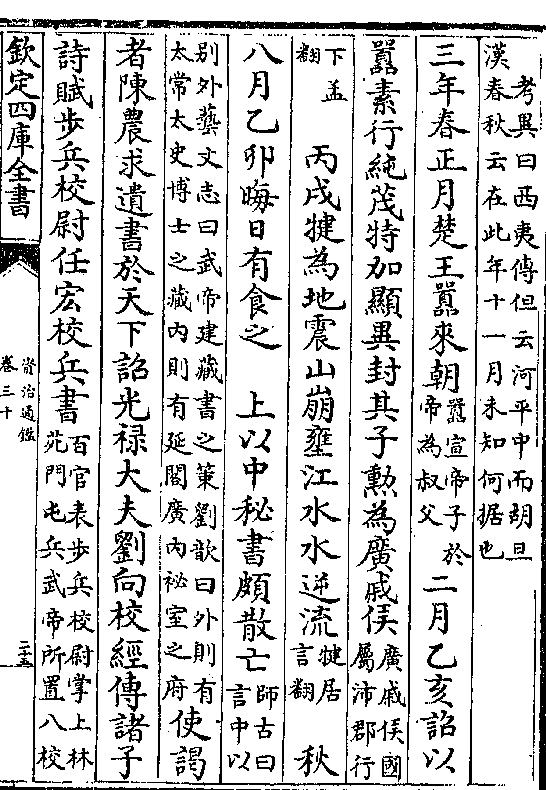 考異曰西夷傳但云河平中而胡旦
漢春秋云在此年十一月未知何据也
三年春正月楚王囂來朝囂宣帝子於帝為叔父二月乙亥詔以
囂素行純茂特加顯異封其子勲為廣戚侯廣戚侯國屬沛郡行
下孟翻 丙戌犍為地震山崩壅江水水逆流犍居言翻 秋
八月乙卯晦日有食之 上以中秘書頗散亡師古曰言中以
别外藝文志曰武帝建藏書之策劉歆曰外則有太常太史博士之藏内則有延閣廣内祕室之府使謁
者陳農求遺書於天下詔光禄大夫劉向校經傳諸子
詩賦步兵校尉任宏校兵書百官表步兵校尉掌上林苑門屯兵武帝所置八校
欽定四庫全書
資治通鑑
卷三十
二十五